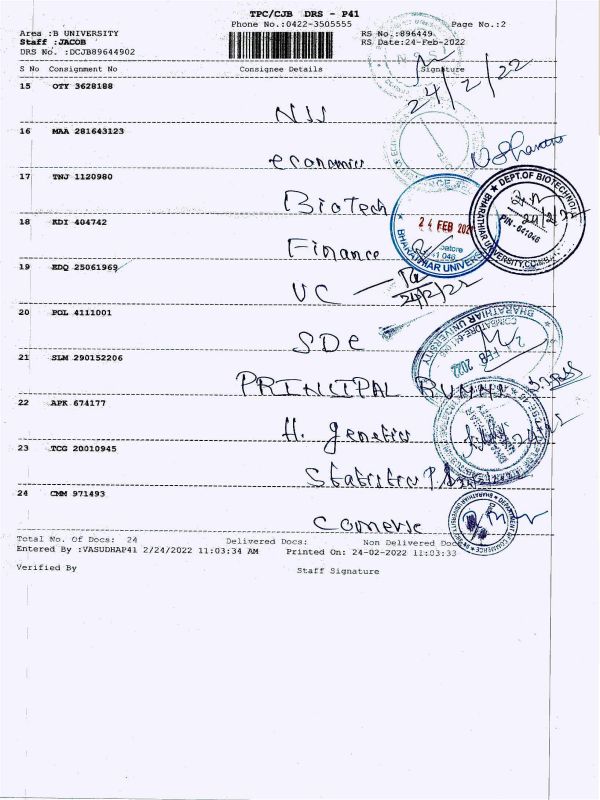 TPC/CJB DRS - P41
Phone No.:0422-3505555 Page No.:2
Area :B UNIVERSITY RS No.:896449
Staff :JACOB RS Date:24-Feb-2022
DRS No. :DCJB89644902
S No Consignment No Consignee Details Signature
24/2/22
15 OTY 3628188
NSS
16 MAA 281643123
economic
17 TNJ 1120980
BioTech
DEPT.OF BIOTECHNOLOGY
PIN - 641046
18 KDI 404742
24 FEB 2022
BHARATHIAR UNIVERSITY
Finance
19 EDQ 25061969
VC
24/2/22
20 POL 4111001
SDC
BHARATHIAR UNIVERSITY
21 SLM 290152206
PRINCIPAL
22 APK 674177
H. genetics
23 TCG 20010945
Statistics
24 CMM 971493
Comerse
Total No. Of Docs: 24 Delivered Docs: Non Delivered Docs:
Entered By :VASUDHAP41 2/24/2022 11:03:34 AM Printed On: 24-02-2022 11:03:33
Verified By Staff Signature